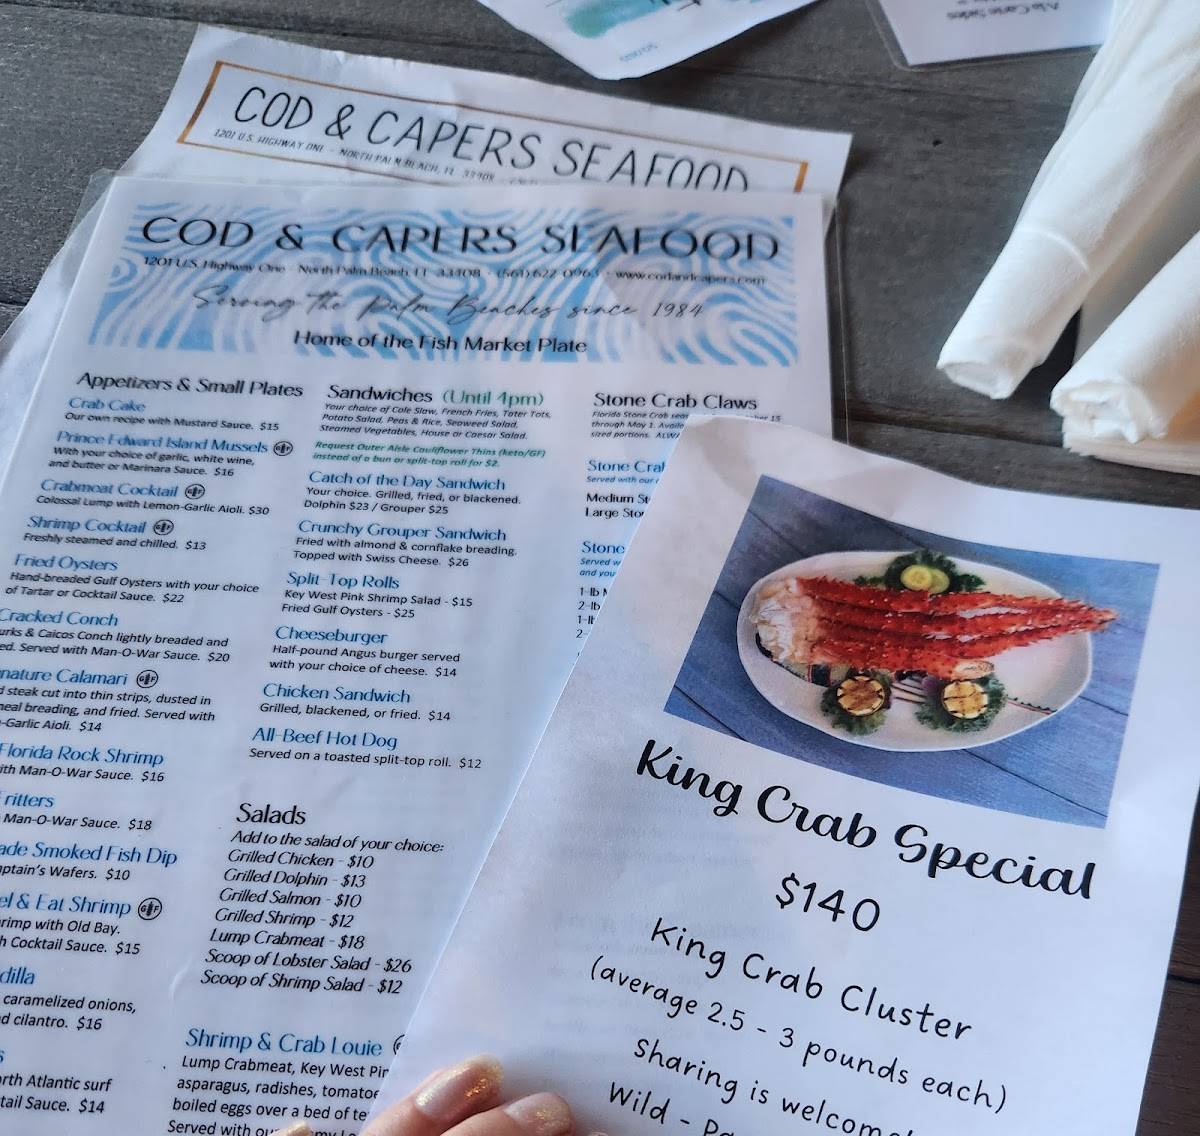 COD & CAPERS SEAFOOD
1201 U.S. HIGHWAY ONE - NORTH PALM BEACH, FL 33408
COD & CAPERS SEAFOOD
1201 U.S. Highway One · North Palm Beach, FL 33408 · (561) 622-0963 · www.codandcapers.com
Serving the Palm Beaches since 1984
Home of the Fish Market Plate
Appetizers & Small Plates
Crab Cake
Our own recipe with Mustard Sauce. $15
Prince Edward Island Mussels GF
With your choice of garlic, white wine,
and butter or Marinara Sauce. $16
Crabmeat Cocktail GF
Colossal Lump with Lemon-Garlic Aioli. $30
Shrimp Cocktail GF
Freshly steamed and chilled. $13
Fried Oysters
Hand-breaded Gulf Oysters with your choice
of Tartar or Cocktail Sauce. $22
Cracked Conch
urks & Caicos Conch lightly breaded and
ed. Served with Man-O-War Sauce. $20
nature Calamari GF
d steak cut into thin strips, dusted in
neal breading, and fried. Served with
-Garlic Aioli. $14
Florida Rock Shrimp
ith Man-O-War Sauce. $16
ritters
Man-O-War Sauce. $18
ade Smoked Fish Dip
ptain's Wafers. $10
el & Eat Shrimp GF
rimp with Old Bay.
h Cocktail Sauce. $15
dilla
caramelized onions,
d cilantro. $16
s
rth Atlantic surf
tail Sauce. $14
Sandwiches (Until 4pm)
Your choice of Cole Slaw, French Fries, Tater Tots,
Potato Salad, Peas & Rice, Seaweed Salad,
Steamed Vegetables, House or Caesar Salad.
Request Outer Aisle Cauliflower Thins (keto/GF)
instead of a bun or split-top roll for $2.
Catch of the Day Sandwich
Your choice. Grilled, fried, or blackened.
Dolphin $23 / Grouper $25
Crunchy Grouper Sandwich
Fried with almond & cornflake breading.
Topped with Swiss Cheese. $26
Split-Top Rolls
Key West Pink Shrimp Salad - $15
Fried Gulf Oysters - $25
Cheeseburger
Half-pound Angus burger served
with your choice of cheese. $14
Chicken Sandwich
Grilled, blackened, or fried. $14
All-Beef Hot Dog
Served on a toasted split-top roll. $12
Salads
Add to the salad of your choice:
Grilled Chicken - $10
Grilled Dolphin - $13
Grilled Salmon - $10
Grilled Shrimp - $12
Lump Crabmeat - $18
Scoop of Lobster Salad - $26
Scoop of Shrimp Salad - $12
Shrimp & Crab Louie
Lump Crabmeat, Key West Pin
asparagus, radishes, tomatoe
boiled eggs over a bed of te
Served with ou
Stone Crab Claws
Florida Stone Crab seas ber 15
through May 1. Availa
sized portions. ALW
Stone Cral
Served with our
Medium St
Large Sto
Stone
Served w
and you
1-lb M
2-lb
1-lb
2-
King Crab Special
$140
King Crab Cluster
(average 2.5 - 3 pounds each)
Sharing is welcome!
Wild -